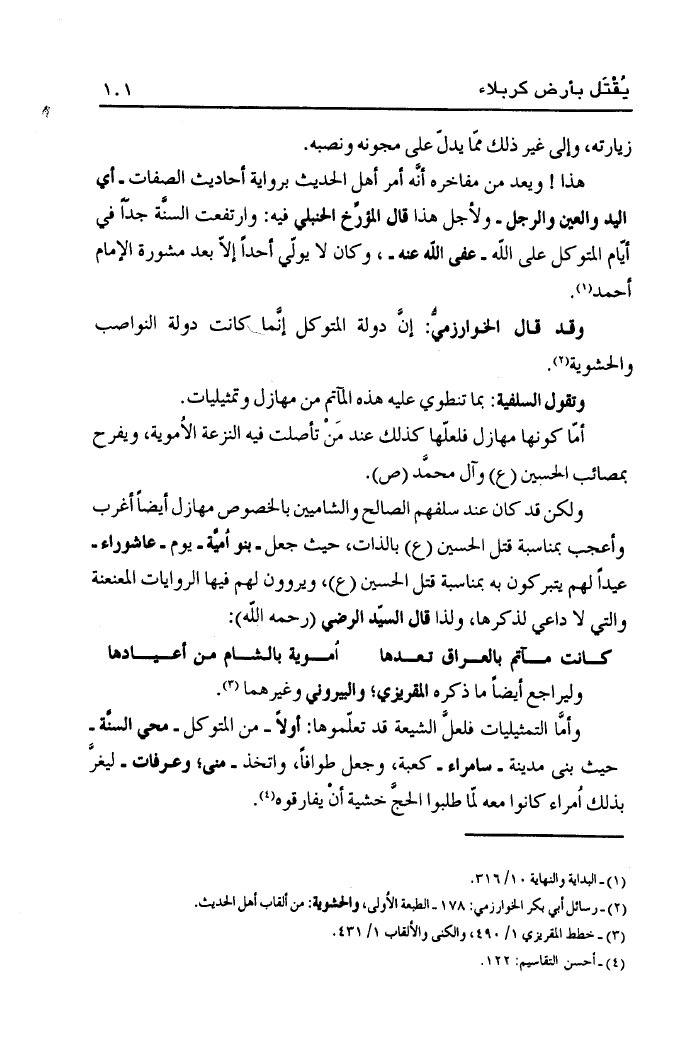 يُقْتَل بأرض كربلاء ١٠١
زيارته، وإلى غير ذلك ممّا يدلّ على مجونه ونصبه.
هذا ! ويعد من مفاخره أنَّه أمر أهل الحديث برواية أحاديث الصفات ـ أي
اليد والعين والرجل ـ ولأجل هذا قال المؤرِّخ الحنبلي فيه: وارتفعت السنَّة جدّاً في
أيّام المتوكل على الله ـ عفى الله عنه ـ ، وكان لا يولّي أحداً إلاّ بعد مشورة الإمام
أحمد(١).
وقد قال الخوارزميُّ: إنَّ دولة المتوكل إنَّما كانت دولة النواصب
والحشوية(٢).
وتقول السلفية: بما تنطوي عليه هذه المآتم من مهازل وتمثيليات.
أمّا كونها مهازل فلعلّها كذلك عند مَنْ تأصلت فيه النزعة الأموية، ويفرح
بمصائب الحسين (ع) وآل محمَّد (ص).
ولكن قد كان عند سلفهم الصالح والشاميين بالخصوص مهازل أيضاً أغرب
وأعجب بمناسبة قتل الحسين (ع) بالذات، حيث جعل ـ بنو أميَّة ـ يوم ـ عاشوراء ـ
عيداً لهم يتبركون به بمناسبة قتل الحسين (ع)، ويروون لهم فيها الروايات المعنعنة
والتي لا داعي لذكرها، ولذا قال السيّد الرضي (رحمه الله):
كـانت مـآتم بالعراق تـعدها أمـوية بالـشام مـن أعـيادها
وليراجع أيضاً ما ذكره المقريزي؛ والبيروني وغيرهما (٣).
وأمَّا التمثيليات فلعلَّ الشيعة قد تعلّموها: أولاً ـ من المتوكل ـ محي السنَّة ـ
حيث بنى مدينة ـ سامراء ـ كعبة، وجعل طوافاً، واتخذ ـ منى؛ وعرفات ـ ليغرَّ
بذلك أمراء كانوا معه لمّا طلبوا الحجّ خشية أنْ يفارقوه(٤).
(١) ـ البداية والنهاية ١٠ / ٣١٦.
(٢) ـ رسائل أبي بكر الخوارزمي: ١٧٨ ـ الطبعة الأولى، والحشوية: من ألقاب أهل الحديث.
(٣) ـ خطط المقريزي ١ / ٤٩٠، والكنى والألقاب ١ / ٤٣١.
(٤) ـ أحسن التقاسيم: ١٢٢.